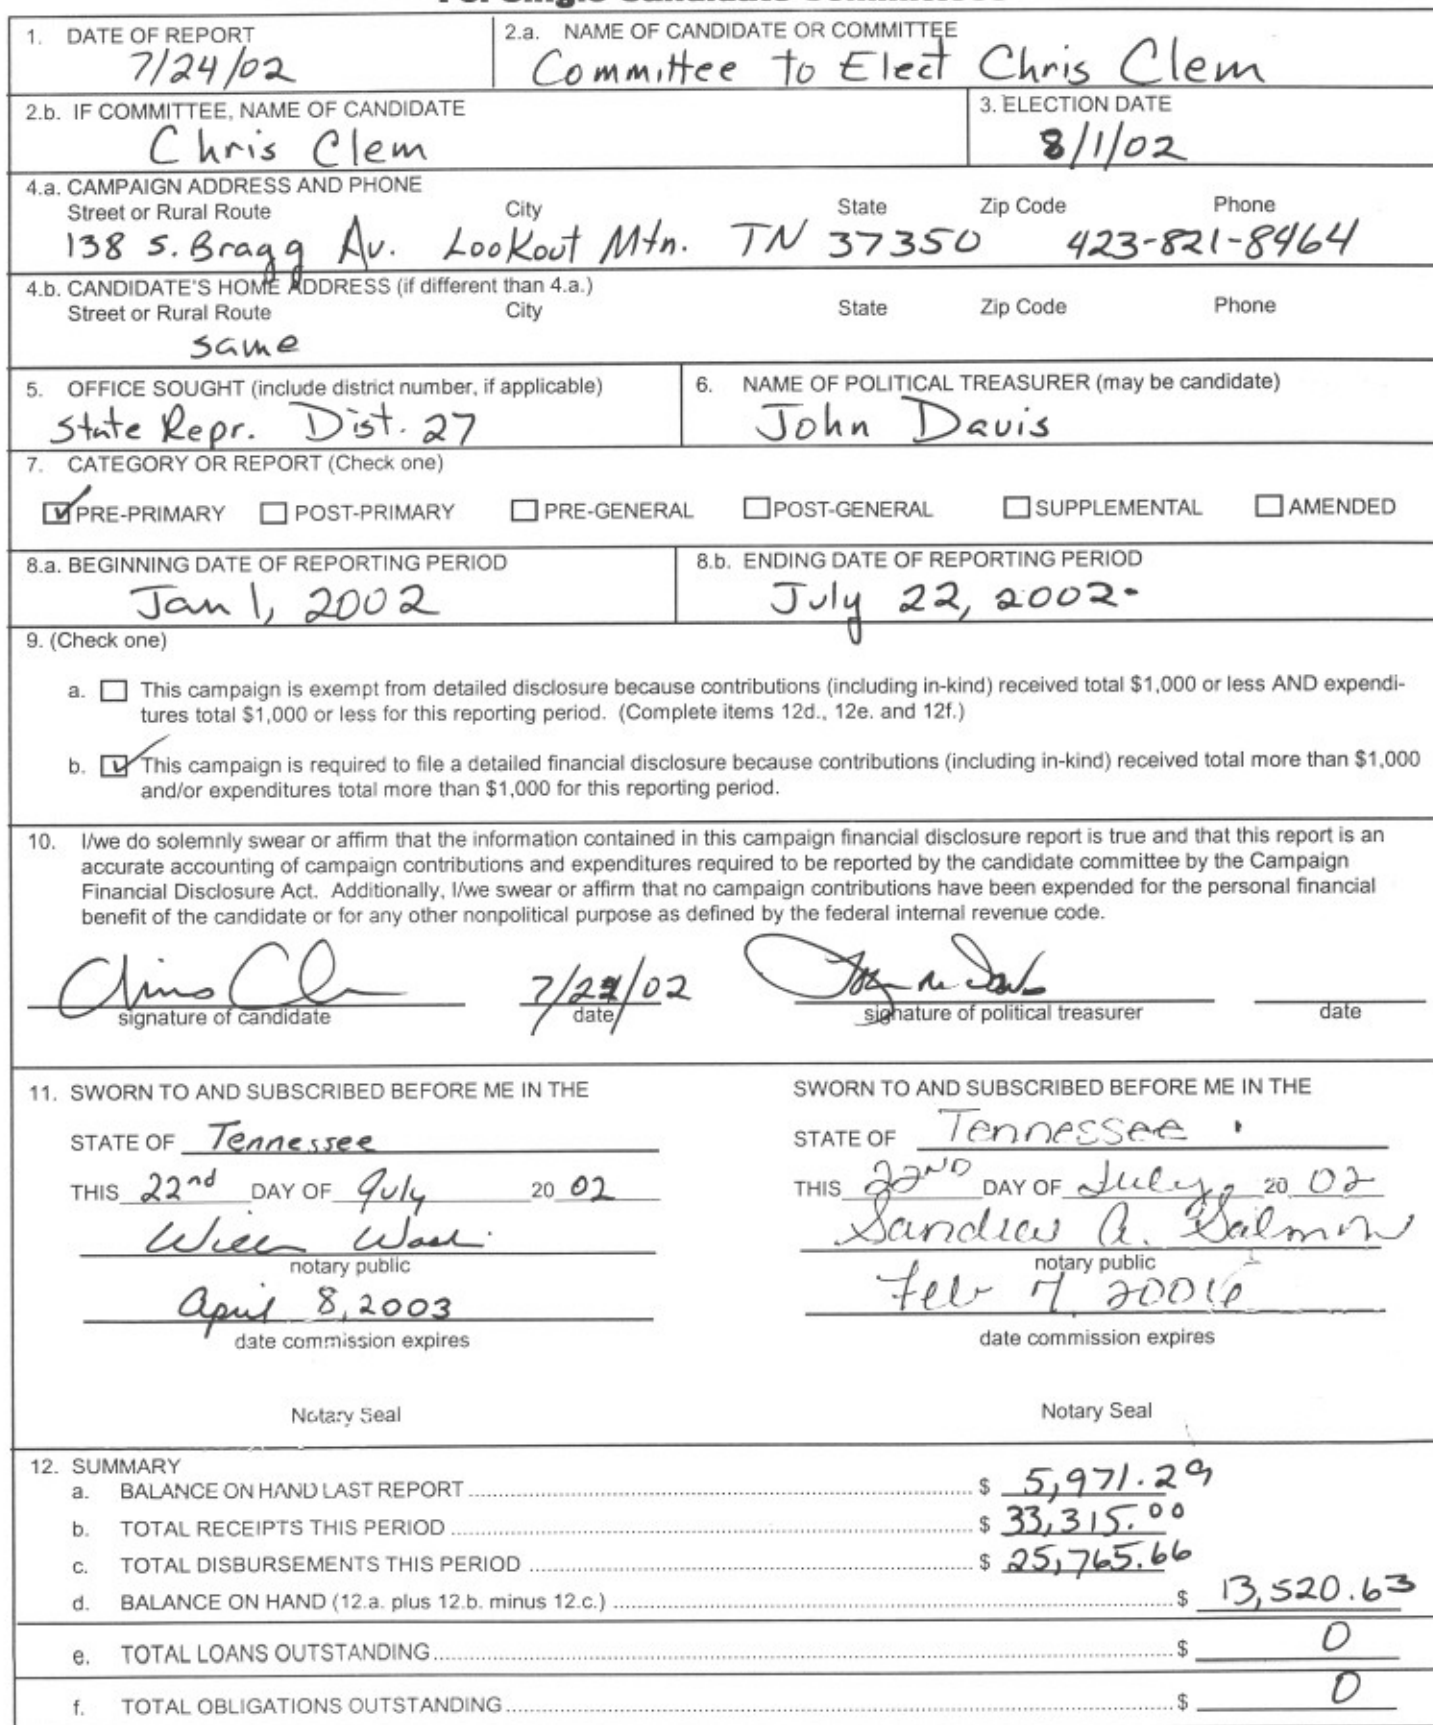 For Single Candidate Committees
1. DATE OF REPORT
7/24/02
2.a. NAME OF CANDIDATE OR COMMITTEE
Committee to Elect Chris Clem
2.b. IF COMMITTEE, NAME OF CANDIDATE
Chris Clem
3. ELECTION DATE
8/1/02
4.a. CAMPAIGN ADDRESS AND PHONE
Street or Rural Route City State Zip Code Phone
138 S. Bragg Av. Lookout Mtn. TN 37350 423-821-8464
4.b. CANDIDATE'S HOME ADDRESS (if different than 4.a.)
Street or Rural Route City State Zip Code Phone
same
5. OFFICE SOUGHT (include district number, if applicable)
State Repr. Dist. 27
6. NAME OF POLITICAL TREASURER (may be candidate)
John Davis
7. CATEGORY OR REPORT (Check one)
PRE-PRIMARY POST-PRIMARY PRE-GENERAL POST-GENERAL SUPPLEMENTAL AMENDED
8.a. BEGINNING DATE OF REPORTING PERIOD
Jan 1, 2002
8.b. ENDING DATE OF REPORTING PERIOD
July 22, 2002
9. (Check one)
a. This campaign is exempt from detailed disclosure because contributions (including in-kind) received total $1,000 or less AND expendi-
tures total $1,000 or less for this reporting period. (Complete items 12d., 12e. and 12f.)
b. This campaign is required to file a detailed financial disclosure because contributions (including in-kind) received total more than $1,000
and/or expenditures total more than $1,000 for this reporting period.
10. I/we do solemnly swear or affirm that the information contained in this campaign financial disclosure report is true and that this report is an
accurate accounting of campaign contributions and expenditures required to be reported by the candidate committee by the Campaign
Financial Disclosure Act. Additionally, I/we swear or affirm that no campaign contributions have been expended for the personal financial
benefit of the candidate or for any other nonpolitical purpose as defined by the federal internal revenue code.
signature of candidate date signature of political treasurer date
11. SWORN TO AND SUBSCRIBED BEFORE ME IN THE
STATE OF Tennessee
THIS 22nd DAY OF July 20 02
notary public
April 8, 2003
date commission expires
Notary Seal
SWORN TO AND SUBSCRIBED BEFORE ME IN THE
STATE OF Tennessee
THIS 22ND DAY OF July, 20 02
Sandra A. Salmon
notary public
Feb 7, 2006
date commission expires
Notary Seal
12. SUMMARY
a. BALANCE ON HAND LAST REPORT $ 5,971.29
b. TOTAL RECEIPTS THIS PERIOD $ 33,315.00
c. TOTAL DISBURSEMENTS THIS PERIOD $ 25,765.66
d. BALANCE ON HAND (12.a. plus 12.b. minus 12.c.) $ 13,520.63
e. TOTAL LOANS OUTSTANDING $ 0
f. TOTAL OBLIGATIONS OUTSTANDING $ 0